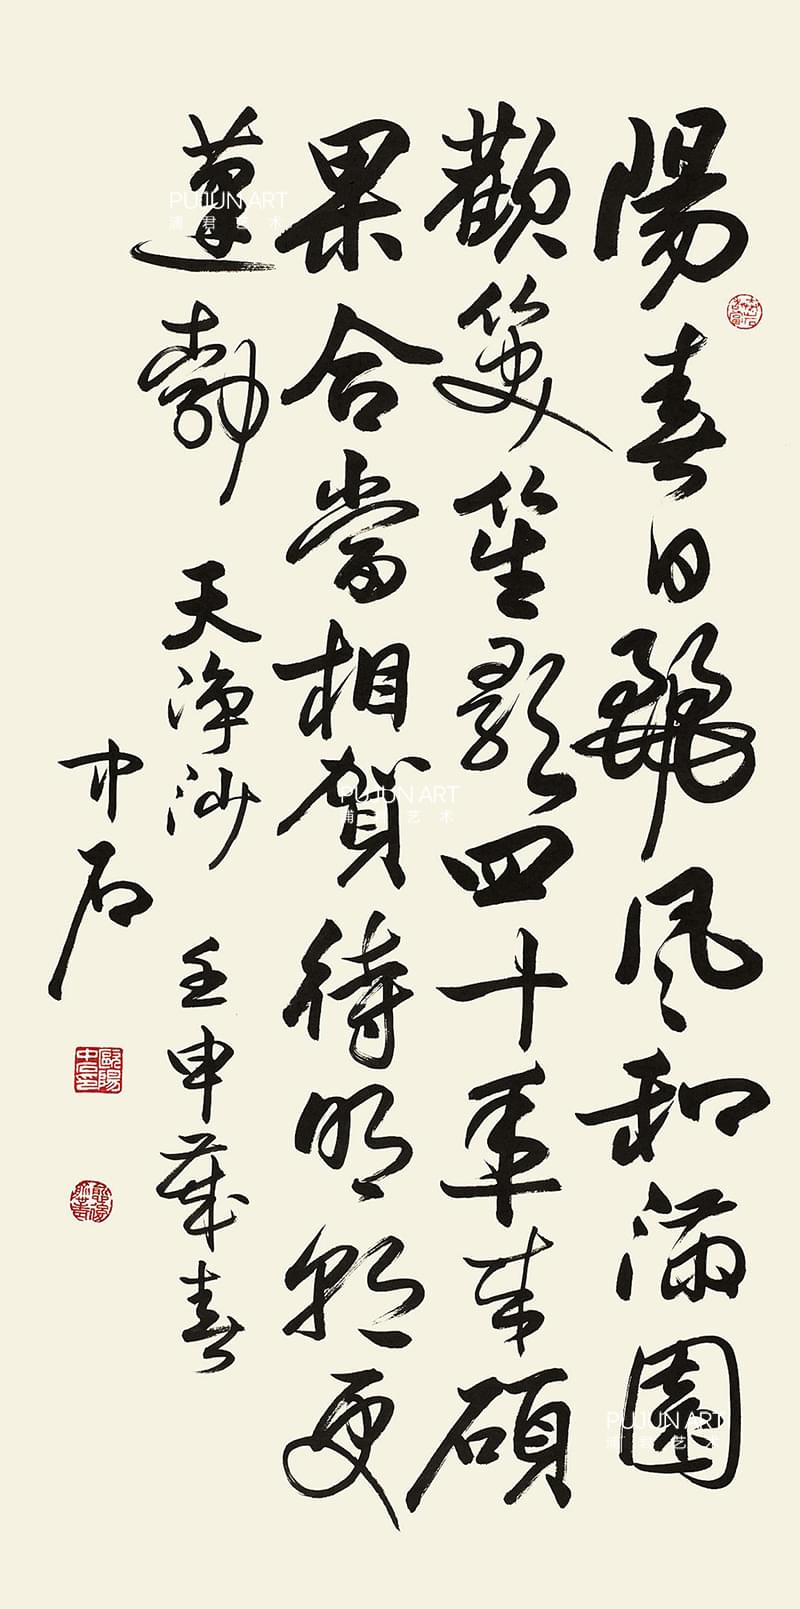 陽春日麗風和滿園
歡笑笙歌四十年來碩
果合當相賀待明朝更
蓬勃 天净沙 壬申歲春
中石
歐陽中石
PUJUN ART
浦君艺术
PUJUN ART
浦君艺术
PUJUN ART
浦君艺术